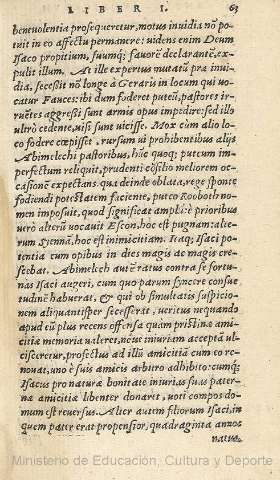 LIBER I. 63
beneuolentia prosequeretur, motus inuidia nõ po
tuit in eo affectu permanere: uidens enim Deum
Isaco propitium, suumq́; fauorē declarantē, ex-
pulit illum. At ille expertus mutatũ præ inui-
dia, secessit nõ longè à Geraris in locum qui uo-
catur Fauces: ibi dum foderet puteũ, pastores ir-
ruẽtes aggressi sunt armis opus impedire: sed illo
ultrò cedente, uisi sunt uicisse. Mox cùm alio lo-
co fodere cœpisset, rursum ui prohibentibus alijs
Abimelechi pastoribus, hũc quoq; puteum im-
perfectum reliquit, prudenti cõsilio meliorem oc-
casionẽ expectans. qua deinde oblata, rege sponte
fodiendi potestatem faciente, puteo Rooboth no-
men imposuit, quod significat amplũ: è prioribus
uero alterũ uocauit Escon, hoc est pugnam: alte-
rum Syennã, hoc est inimicitiam. Itaq; Isaci po-
tentia cum opibus in dies magis ac magis cre-
scebat. Abimelech autẽ ratus contra se fortu-
nas Isaci augeri, cum quo parum syncerè consue
tudinẽ habuerat, & qui ob simultatis suspicio-
nem aliquantisper secesserat, ueritus ne quando
apud eũ plus recens offensa quàm pristinæ ami
citiæ memoria ualeret, nouã iniuriam acceptã ul-
cisceretur, profectus ad illũ amicitiã cum eo re-
nouat, uno è suis amicis arbitro adhibito: cumq;
Isacus pro naturæ bonitate iniurias suas pater-
næ amicitiæ libenter donaret, uoti compos do-
mum est reuersus. Alter autem filiorum Isaci, in
quem pater erat propensior, quadraginta annos
natus
Ministerio de Educación, Cultura y Deporte